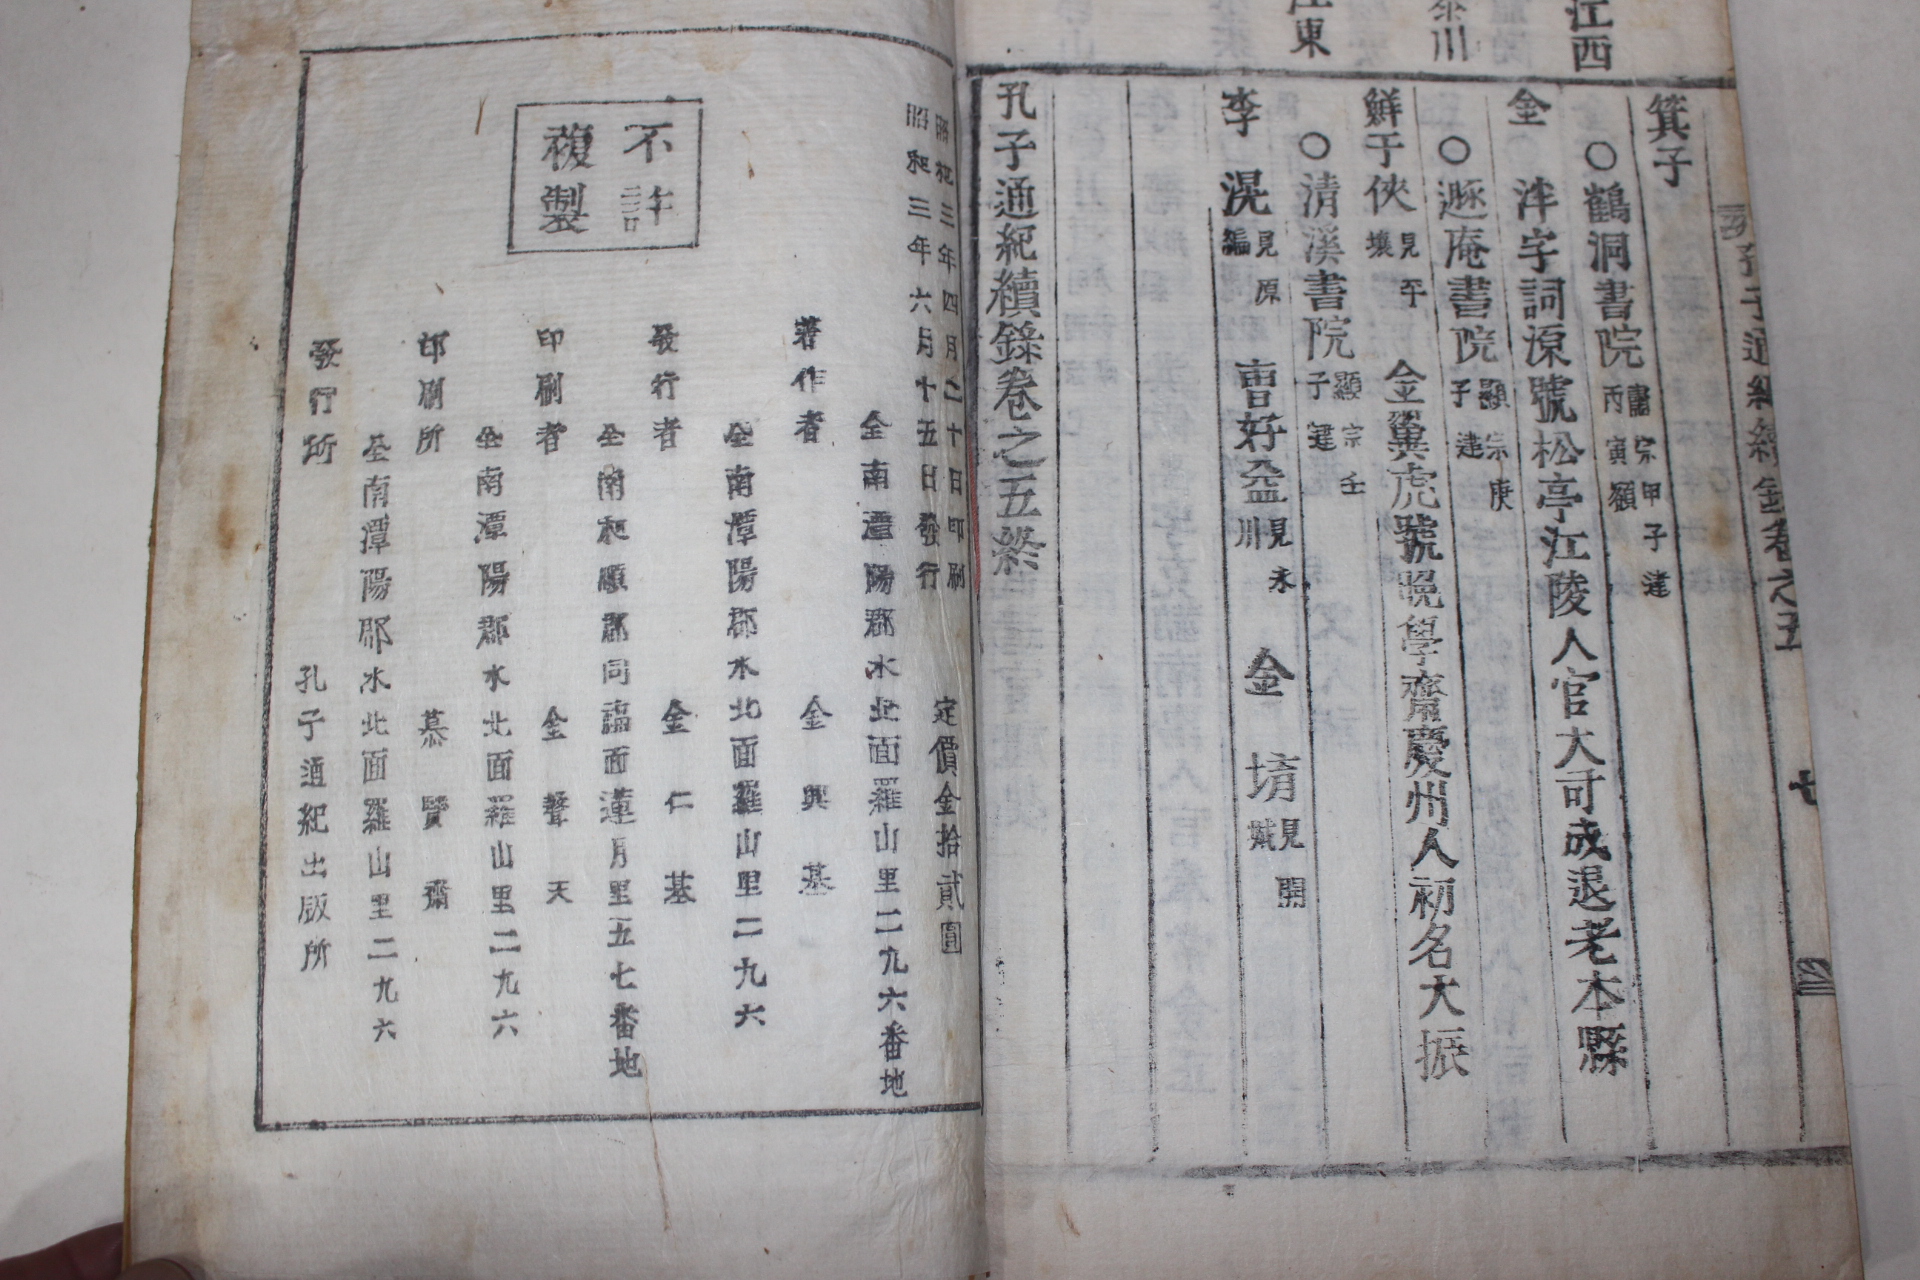 江西
箕子
○鶴洞書院肅宗甲子建
丙寅額
金泮字詞源號松亭江陵人官大司成退老本縣
泰川
○遯庵書院顯宗庚
子建
鮮于浹見平
壤
金翼虎號晩學齋慶州人初名大振
江東
○清溪書院顯宗壬
子建
李滉見原
編
曺好益見永
川
金堉見開
城
孔子通紀續錄卷之五終
孔子通紀續錄卷之五
七
昭和三年四月二十日印刷
昭和三年六月十五日發行
定價金拾貳圓
不許
複製
全南潭陽郡水北面羅山里二九六番地
著作者 金興基
全南潭陽郡水北面羅山里二九六
發行者 金仁基
全南和順郡同福面蓮月里五七番地
印刷者 金聲天
全南潭陽郡水北面羅山里二九六
印刷所 慕賢齋
全南潭陽郡水北面羅山里二九六
發行所 孔子通紀出版所